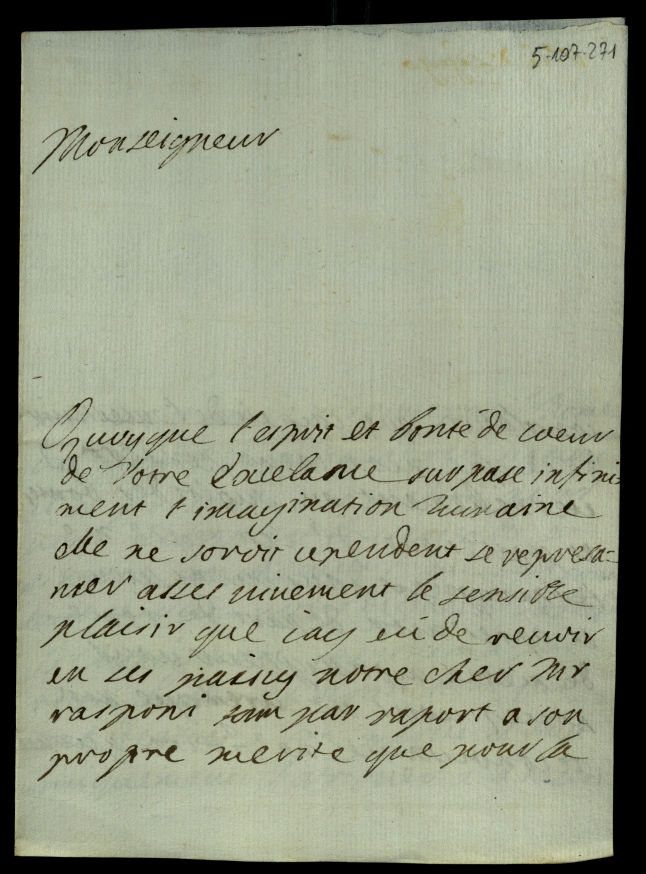 5-107-271
Monseigneur
Quoyque l'esprit et bonté de coeur
de Votre Excelance surpase infini-
ment l'imagination humaine
elle ne soroit cependent se represen-
nter asses vivement le sensible
plaisir que iay eü de revoir
en ces paisiy notre cher Mr
rasponi tam par raport a son
propre merite que pour la